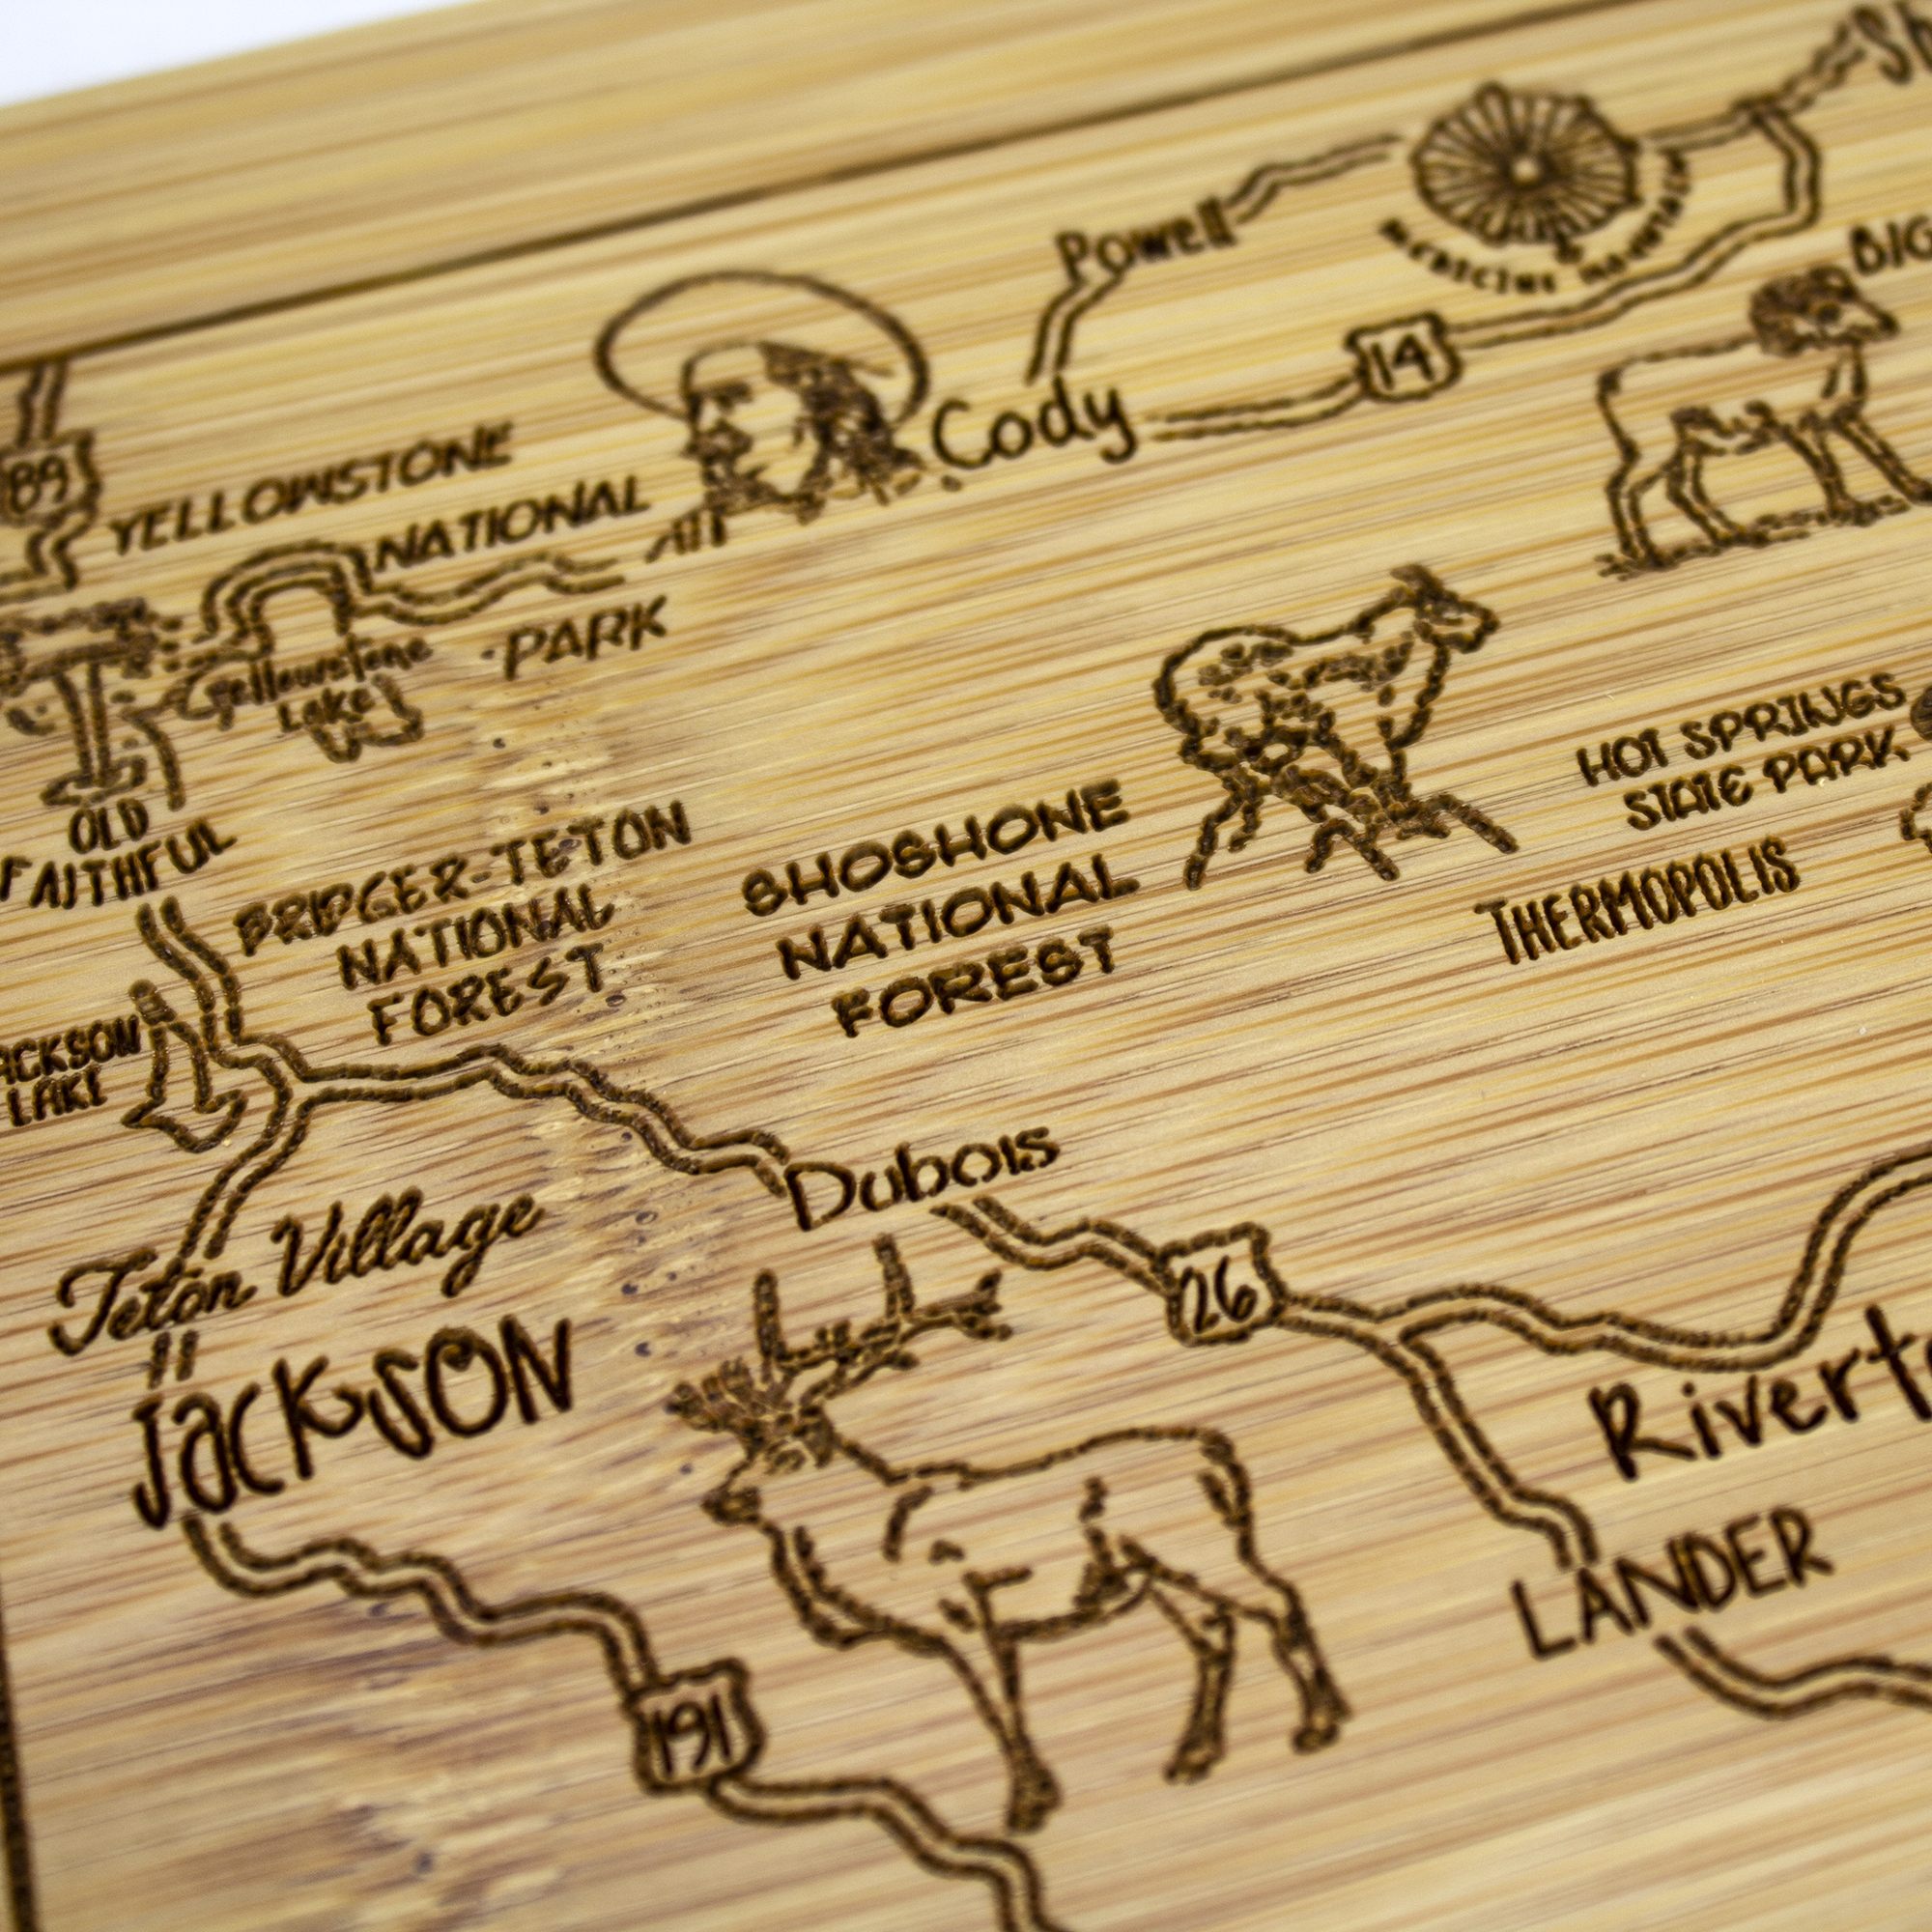 Powell
MEDICINE MOUNTAIN
BIG
14
Cody
89
YELLOWSTONE
NATIONAL
PARK
Yellowstone
Lake
OLD
FAITHFUL
BRIDGER-TETON
NATIONAL
FOREST
SHOSHONE
NATIONAL
FOREST
HOT SPRINGS
STATE PARK
THERMOPOLIS
ACKSON
LAKE
Dubois
26
Teton Village
JACKSON
Riverto
LANDER
191